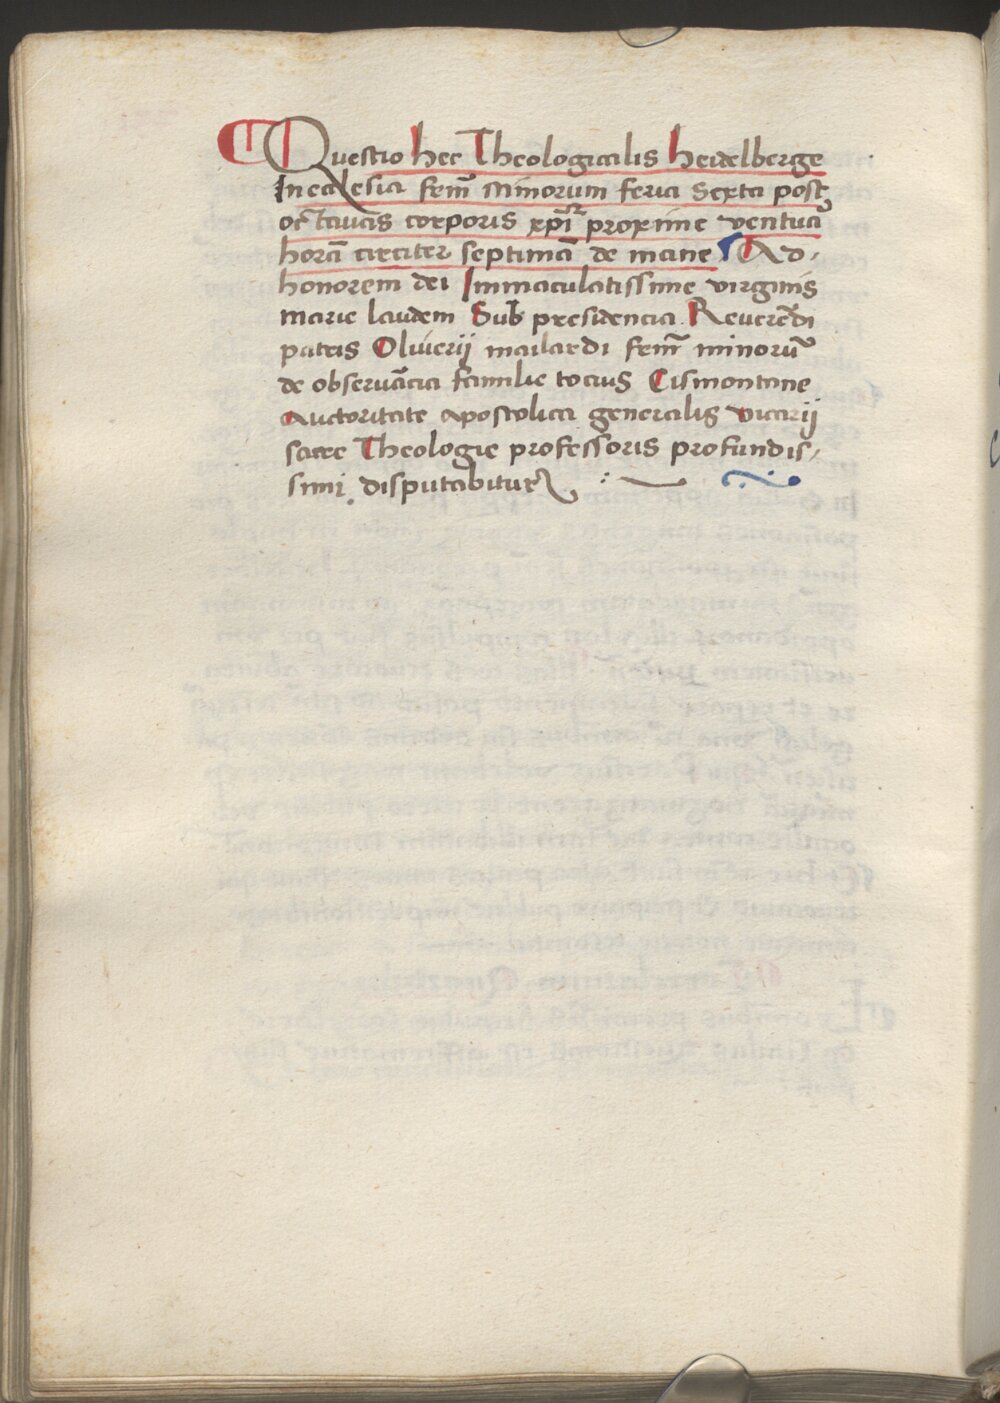 Questio hec Theologicalis heidelberge
In ecclesia frm̄ Minorum feria Sexta post
octauas corporis xpī proxime ventura
horā circiter septimā de mane Ad-
honorem dei Immaculatissime virginis
marie laudem Sub presidencia Reuerēdi
patris Oliuerij mailardi frm̄ minorū
de obseruācia familie tocius Cismontane
Auctoritate apostolica generalis vicarij
sacre Theologie professoris profundis-
simi disputabitur